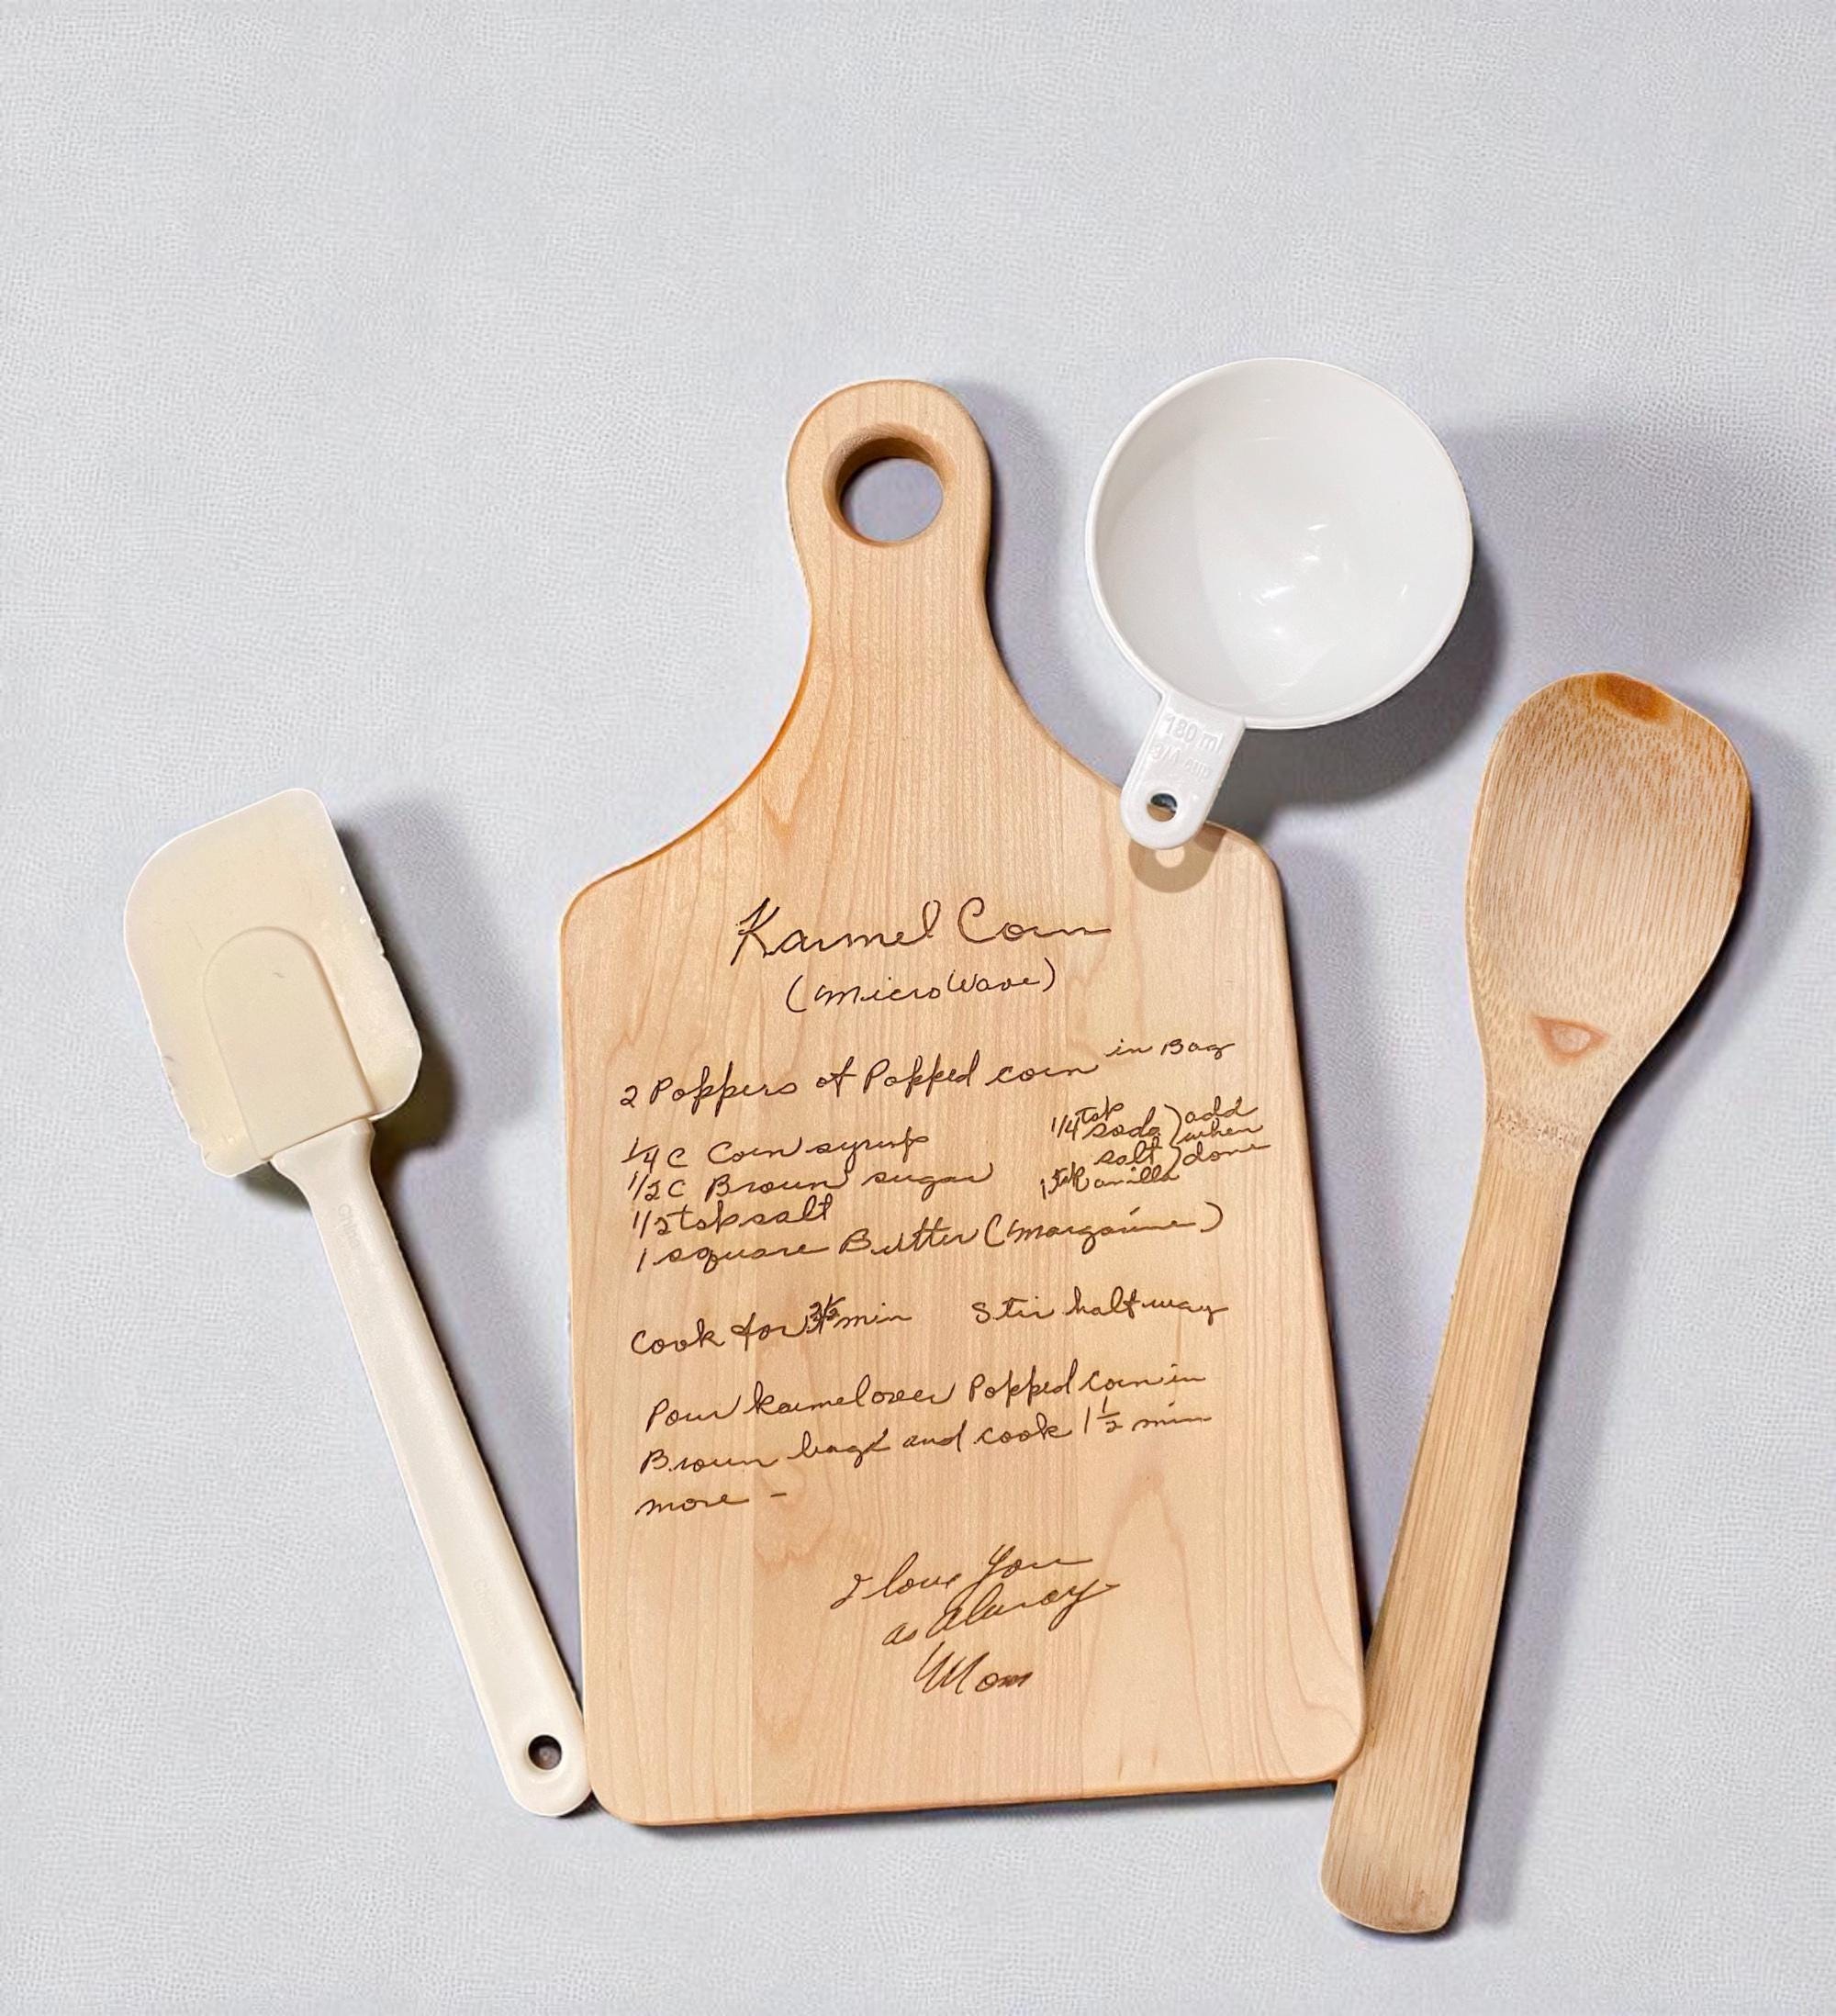 180 ml
3/4 cup
Karmel Corn
(MicroWave)
2 Poppers of Popped corn in Bag
1/4 C Corn syrup
1/2 C Brown sugar
1/2 tsp salt
1 square Butter (Margarine)
1/4 tsp soda ) add
salt ) when
1 tsp Vanilla ) done
Cook for min Stir halfway
Pour karmel over Popped corn in
Brown bag and cook 1 1/2 min
more -
I love You
as Alway
Mom